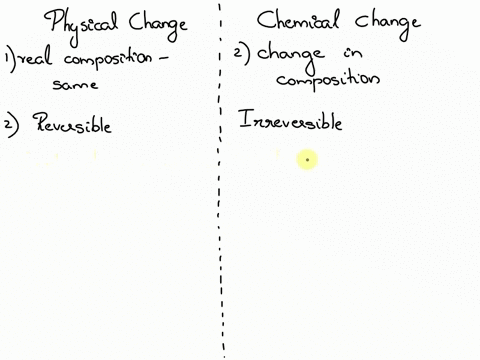 Physical Change
1) real composition -
same
2) Reversible
Chemical change
2) change in
composition
Irreversible